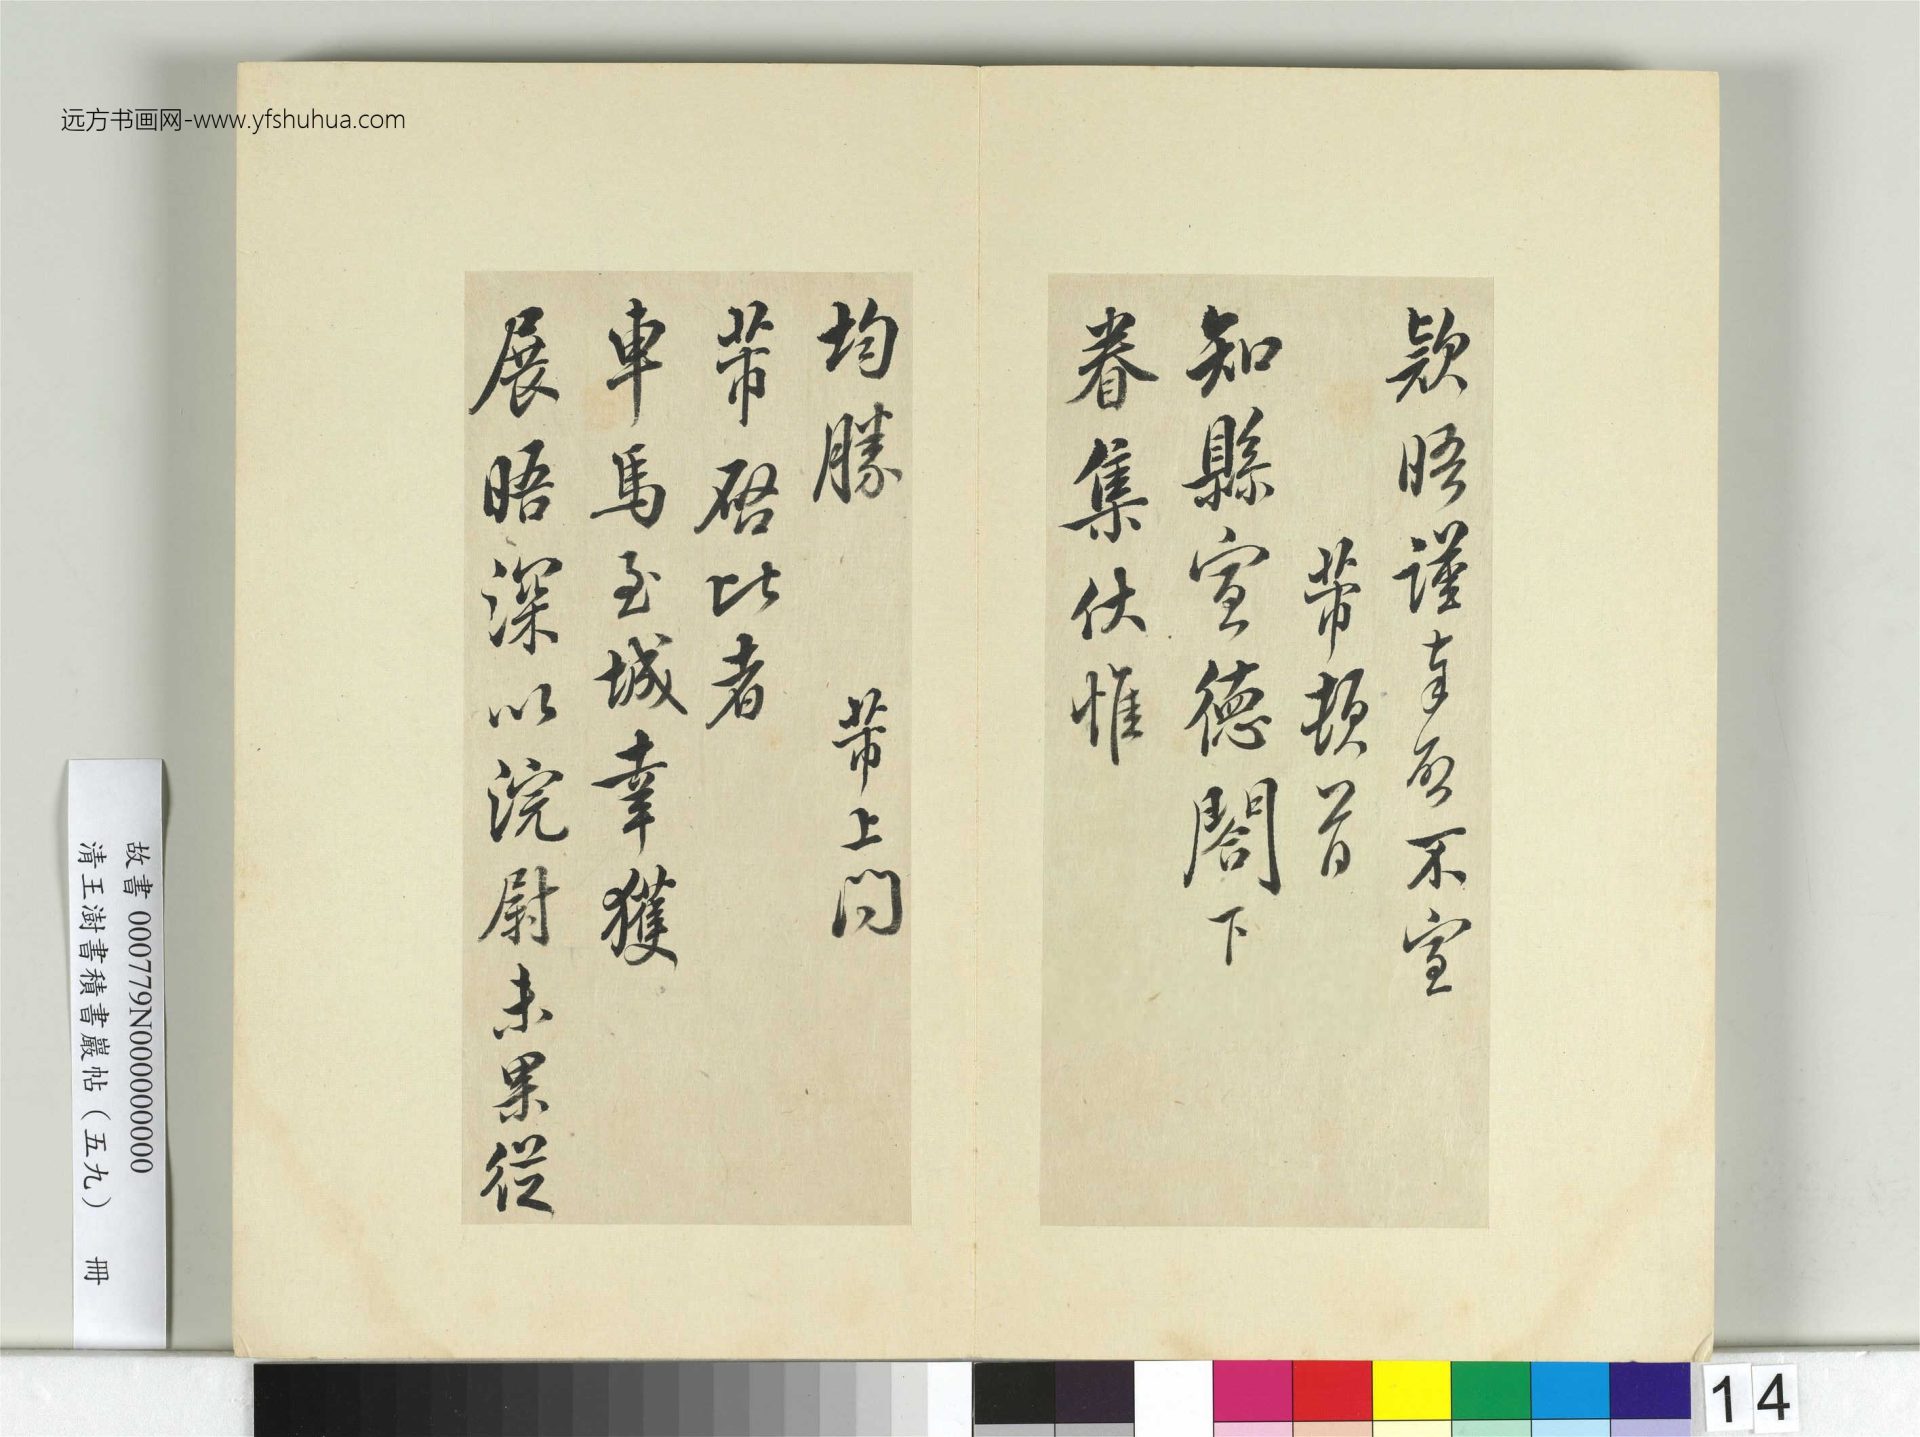 远方书画网-www.yfshuhua.com
款晤謹奉啓不宣
芾頓首
知縣宣德閤下
眷集伏惟
均勝 芾上問
芾啓比者
車馬至城幸獲
展晤深以浣尉未果從
故書 000779N000000000
清王澍書積書巖帖（五九） 冊
14